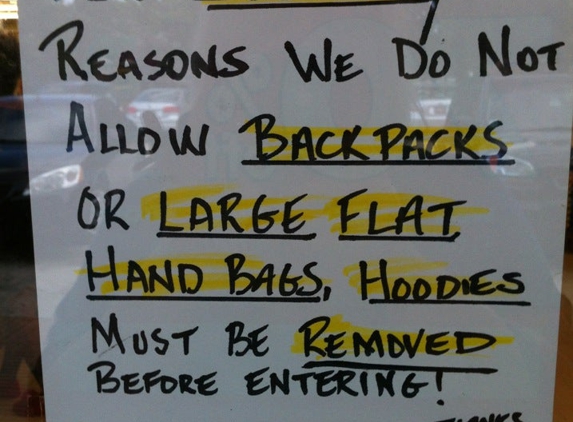 REASONS WE DO NOT
ALLOW BACKPACKS
OR LARGE FLAT
HAND BAGS, HOODIES
MUST BE REMOVED
BEFORE ENTERING!